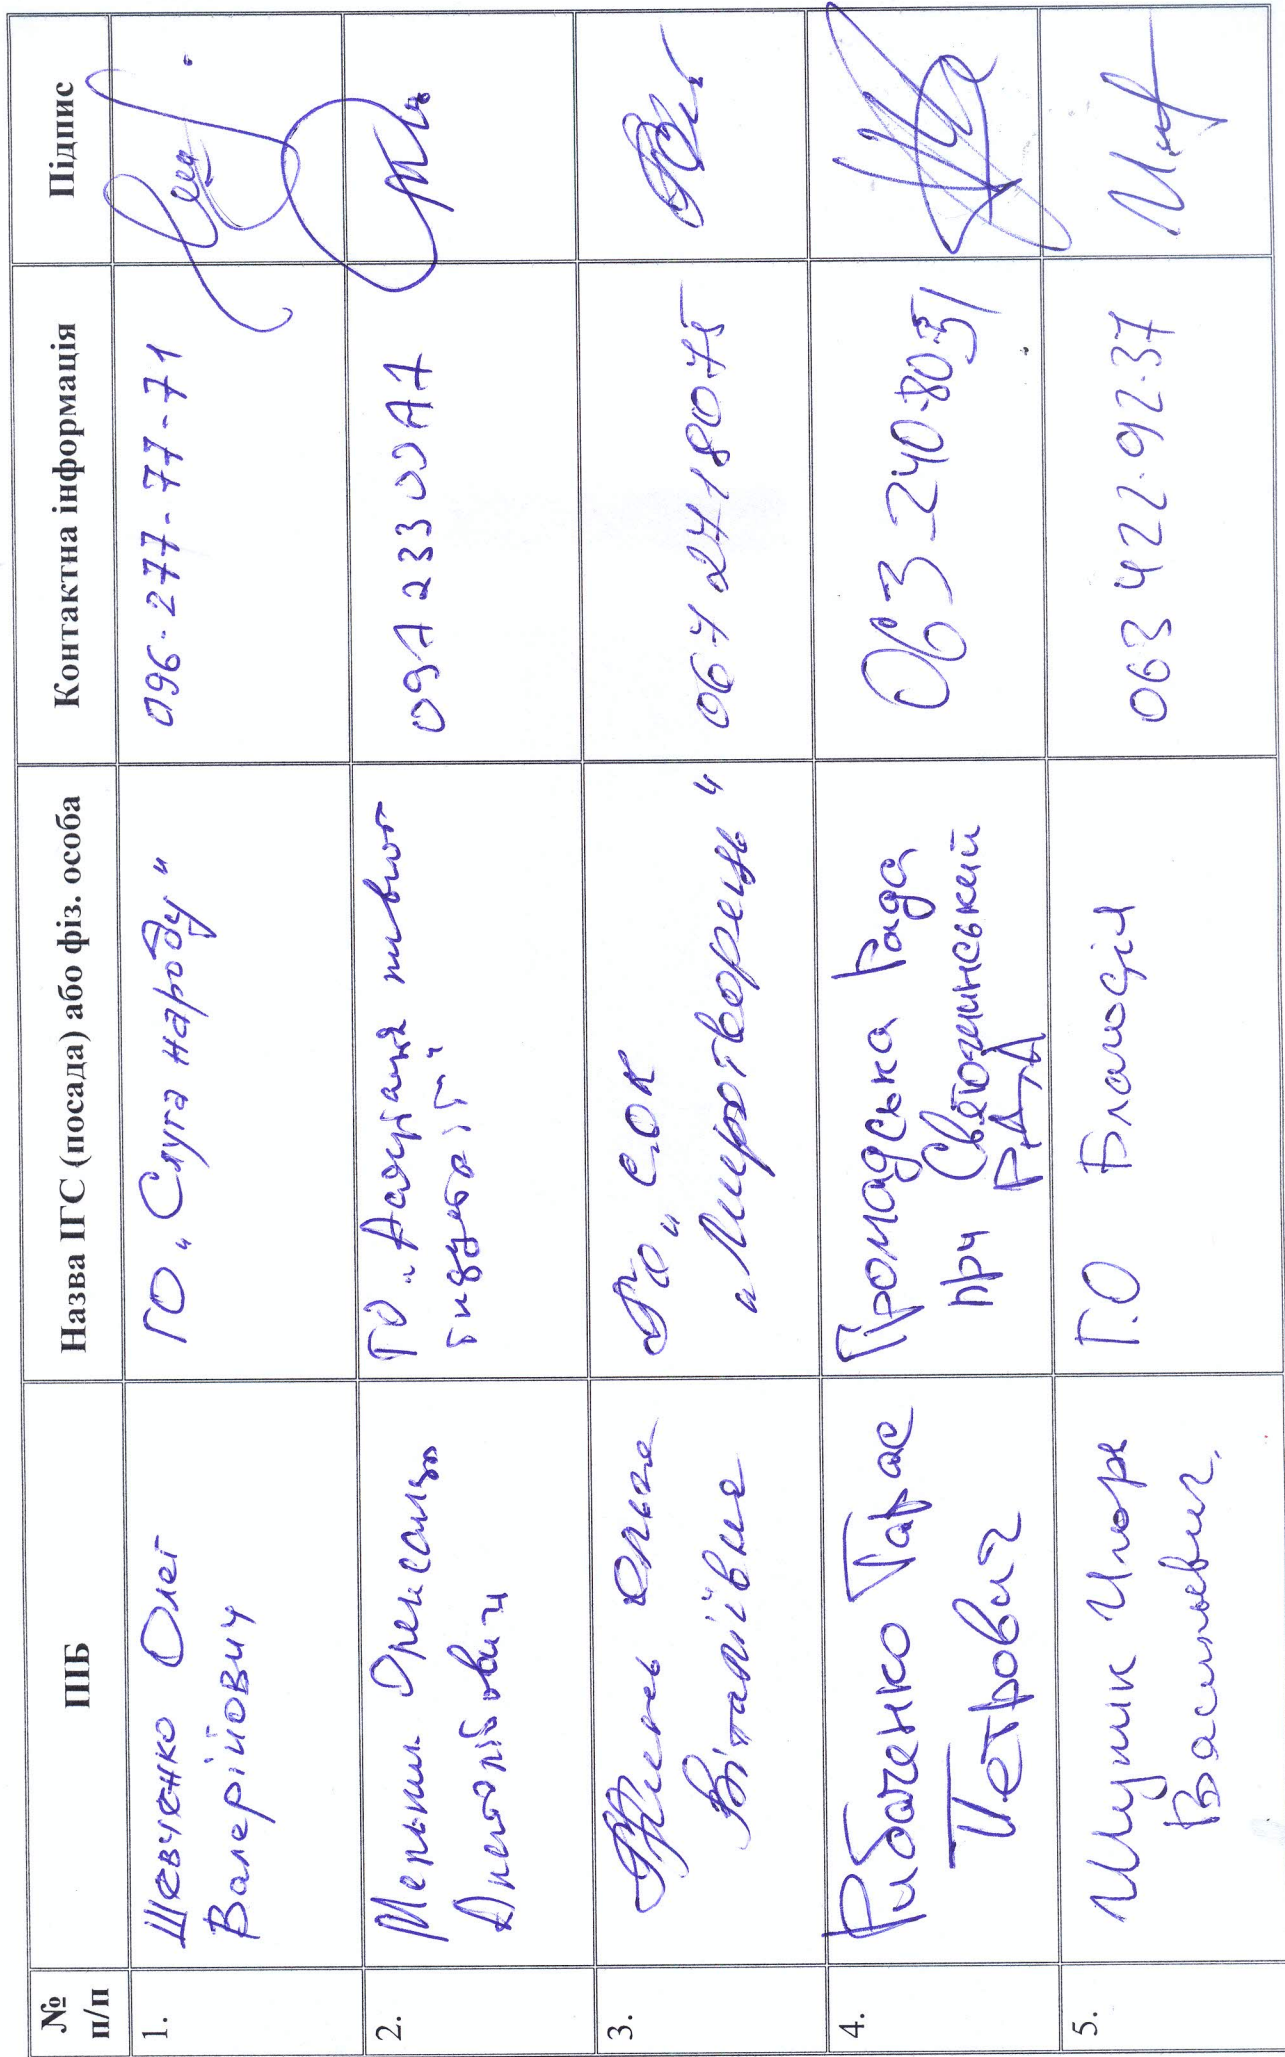 № п/п
ПІБ
Назва ІГС (посада) або фіз. особа
Контактна інформація
Підпис
1.
Шевченко Олег
Валерійович
ГО „Слуга народу"
096-277-77-71
2.
Мельник Олександр
Анатолійович
ГО „Асоціація
097 233 00 77
3.
Ольга
Віталіївна
ГО „ СОК
„Миротворець"
067 2418075
4.
Рибаченко Тарас
Петрович
Громадська Рада
при Святошинській
РДА
063-240-80-51
5.
Игор
Васильевич.
Г.О Благодія
063 422.92.37